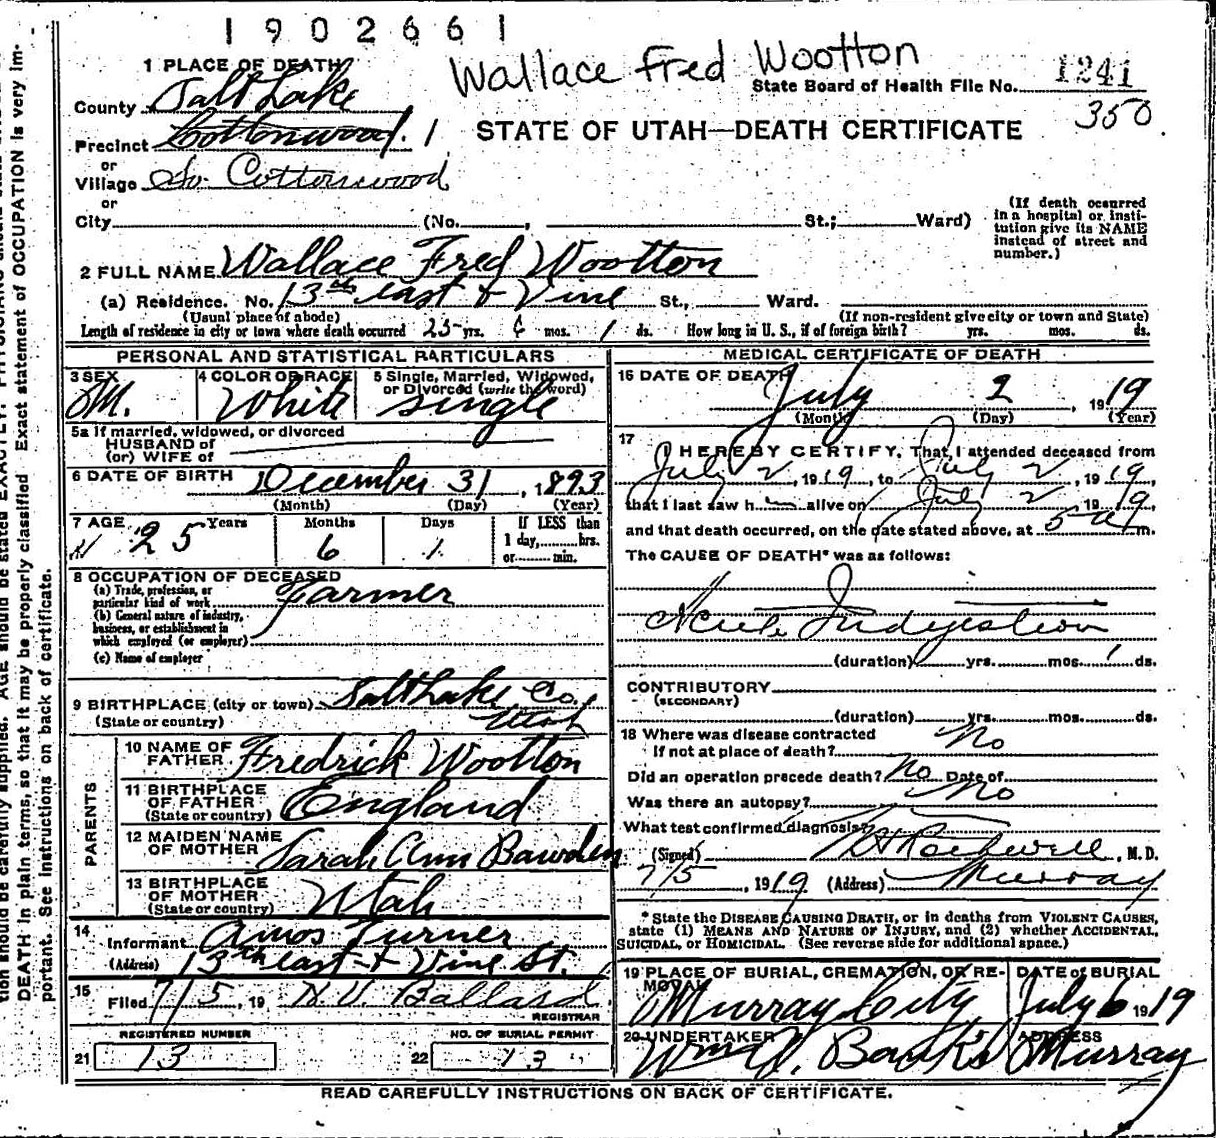 1902661
Wallace Fred Wootton
1 PLACE OF DEATH
State Board of Health File No. 1241
County Salt Lake
350.
Precinct Cottonwood. 1
STATE OF UTAH—DEATH CERTIFICATE
or
Village So. Cottonwood
or
City (No. , St.; Ward)
(If death occurred in a hospital or institution give its NAME instead of street and number.)
2 FULL NAME Wallace Fred Wootton
(a) Residence. No. 13th east + Vine St., Ward.
(Usual place of abode) (If non-resident give city or town and State)
Length of residence in city or town where death occurred 25 yrs. 6 mos. 1 ds. How long in U. S., if of foreign birth? yrs. mos. ds.
PERSONAL AND STATISTICAL PARTICULARS
3 SEX M.
4 COLOR OR RACE White
5 Single, Married, Widowed, or Divorced (write the word) single
5a If married, widowed, or divorced
HUSBAND of
(or) WIFE of
6 DATE OF BIRTH December 31, 1893
(Month) (Day) (Year)
7 AGE 25 Years 6 Months 1 Days
If LESS than 1 day, hrs. or min.
8 OCCUPATION OF DECEASED
(a) Trade, profession, or particular kind of work Farmer
(b) General nature of industry, business, or establishment in which employed (or employer)
(c) Name of employer
9 BIRTHPLACE (city or town) Salt Lake Co.
(State or country) Utah
PARENTS
10 NAME OF FATHER Fredrick Wootton
11 BIRTHPLACE OF FATHER (State or country) England
12 MAIDEN NAME OF MOTHER Sarah Ann Bawden
13 BIRTHPLACE OF MOTHER (State or country) Utah
14
Informant Amos Turner
(Address) 13th east + Vine St.
15
Filed 7/5, 19 H. V. Ballard
REGISTRAR
REGISTERED NUMBER NO. OF BURIAL PERMIT
21 13 22 13
MEDICAL CERTIFICATE OF DEATH
16 DATE OF DEATH July 2, 1919
(Month) (Day) (Year)
17 I HEREBY CERTIFY, That I attended deceased from
July 2, 1919, to July 2, 1919,
that I last saw h alive on July 2, 1919,
and that death occurred, on the date stated above, at 5 a m.
The CAUSE OF DEATH* was as follows:
Acute Indigestion
(duration) yrs. mos. 1 ds.
CONTRIBUTORY
(SECONDARY)
(duration) yrs. mos. ds.
18 Where was disease contracted
if not at place of death? No
Did an operation precede death? No Date of
Was there an autopsy? No
What test confirmed diagnosis?
(Signed) Rockwell, M. D.
7/5, 1919 (Address) Murray
* State the DISEASE CAUSING DEATH, or in deaths from VIOLENT CAUSES, state (1) MEANS AND NATURE OF INJURY, and (2) whether ACCIDENTAL, SUICIDAL, or HOMICIDAL. (See reverse side for additional space.)
19 PLACE OF BURIAL, CREMATION, OR REMOVAL Murray City
DATE of BURIAL July 6 1919
20 UNDERTAKER Banks
ADDRESS Murray
READ CAREFULLY INSTRUCTIONS ON BACK OF CERTIFICATE.
DEATH in plain terms, so that it may be properly classified. Exact statement of OCCUPATION is very important. See instructions on back of certificate.